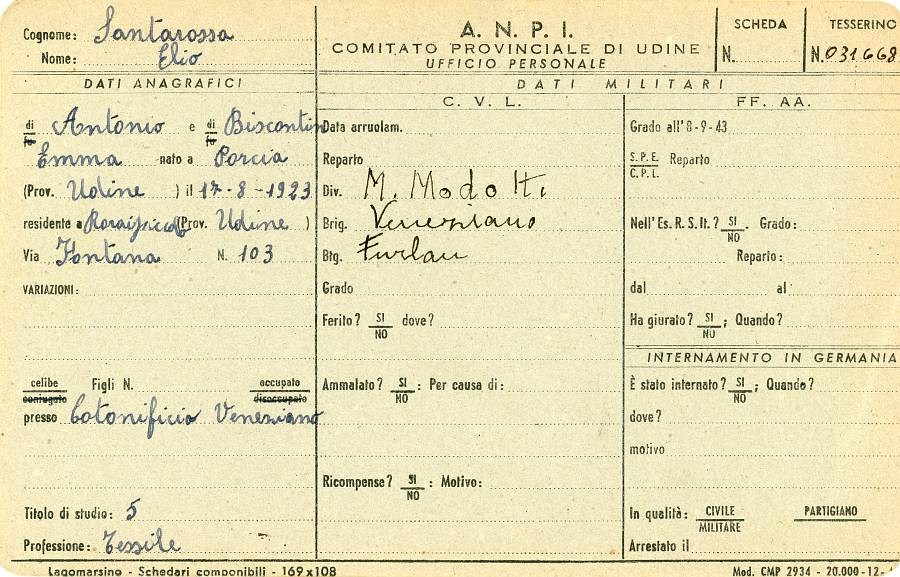 Cognome: Santarossa
Nome: Elio
A. N. P. I.
COMITATO PROVINCIALE DI UDINE
UFFICIO PERSONALE
SCHEDA
N.
TESSERINO
N. 031668
DATI ANAGRAFICI
di fu Antonio e di fu Biscontin
Emma nato a Porcia
(Prov. Udine ) il 17-8-1923
residente a (Prov. Udine )
Via Fontana N. 103
VARIAZIONI:
celibe coniugato Figli N. occupato disoccupato
presso Cotonificio Veneziano
Titolo di studio: 5
Professione: Tessile
DATI MILITARI
C. V. L.
Data arruolam.
Reparto
Div. M. Modotti
Brig. Veneziano
Btg. Furlan
Grado
Ferito? SI NO dove?
Ammalato? SI NO : Per causa di:
Ricompense? SI NO : Motivo:
FF. AA.
Grado all'8-9-43
S.P.E. C.P.L. Reparto
Nell'Es. R. S. It.? SI NO . Grado:
Reparto:
dal al
Ha giurato? SI NO ; Quando?
INTERNAMENTO IN GERMANIA
È stato internato? SI NO ; Quando?
dove?
motivo
In qualità: CIVILE MILITARE PARTIGIANO
Arrestato il
Lagomarsino - Schedari componibili - 169x108
Mod. CMP 2934 - 20.000-12-